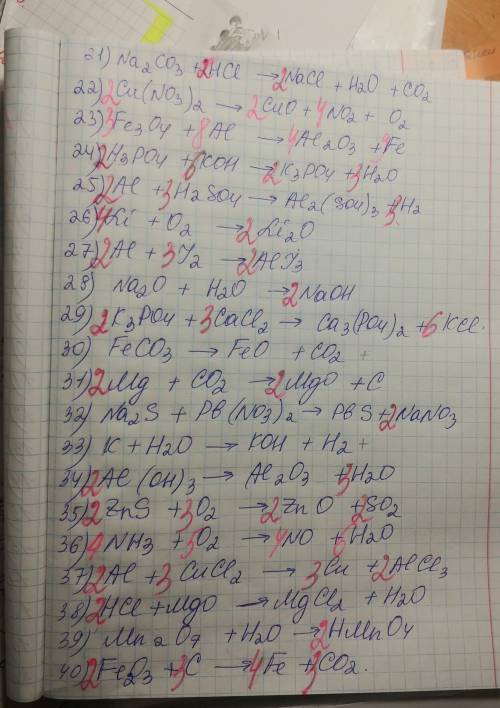 21) Na2CO3 + 2HCl → 2NaCl + H2O + CO2
22) 2Cu(NO3)2 → 2CuO + 4NO2 + O2
23) 3Fe3O4 + 8Al → 4Al2O3 + 9Fe
24) 2H3PO4 + 6KOH → 2K3PO4 + 3H2O
25) 2Al + 3H2SO4 → Al2(SO4)3 + 3H2
26) 4Li + O2 → 2Li2O
27) 2Al + 3I2 → 2AlI3
28) Na2O + H2O → 2NaOH
29) 2K3PO4 + 3CaCl2 → Ca3(PO4)2 + 6KCl.
30) FeCO3 → FeO + CO2 +
31) 2Mg + CO2 → 2MgO + C
32) Na2S + Pb(NO3)2 → PbS + 2NaNO3
33) K + H2O → KOH + H2 +
34) 2Al(OH)3 → Al2O3 + 3H2O
35) 2ZnS + 3O2 → 2ZnO + 2SO2
36) 4NH3 + 5O2 → 4NO + 6H2O
37) 2Al + 3CuCl2 → 3Cu + 2AlCl3
38) 2HCl + MgO → MgCl2 + H2O
39) Mn2O7 + H2O → 2HMnO4
40) 2Fe2O3 + 3C → 4Fe + 3CO2.